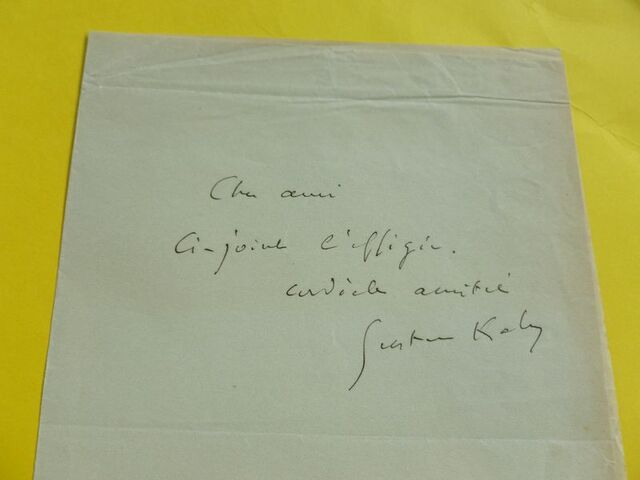 Cher ami
Ci-joint l'effigie.
cordiale amitié
Gustave Kahn